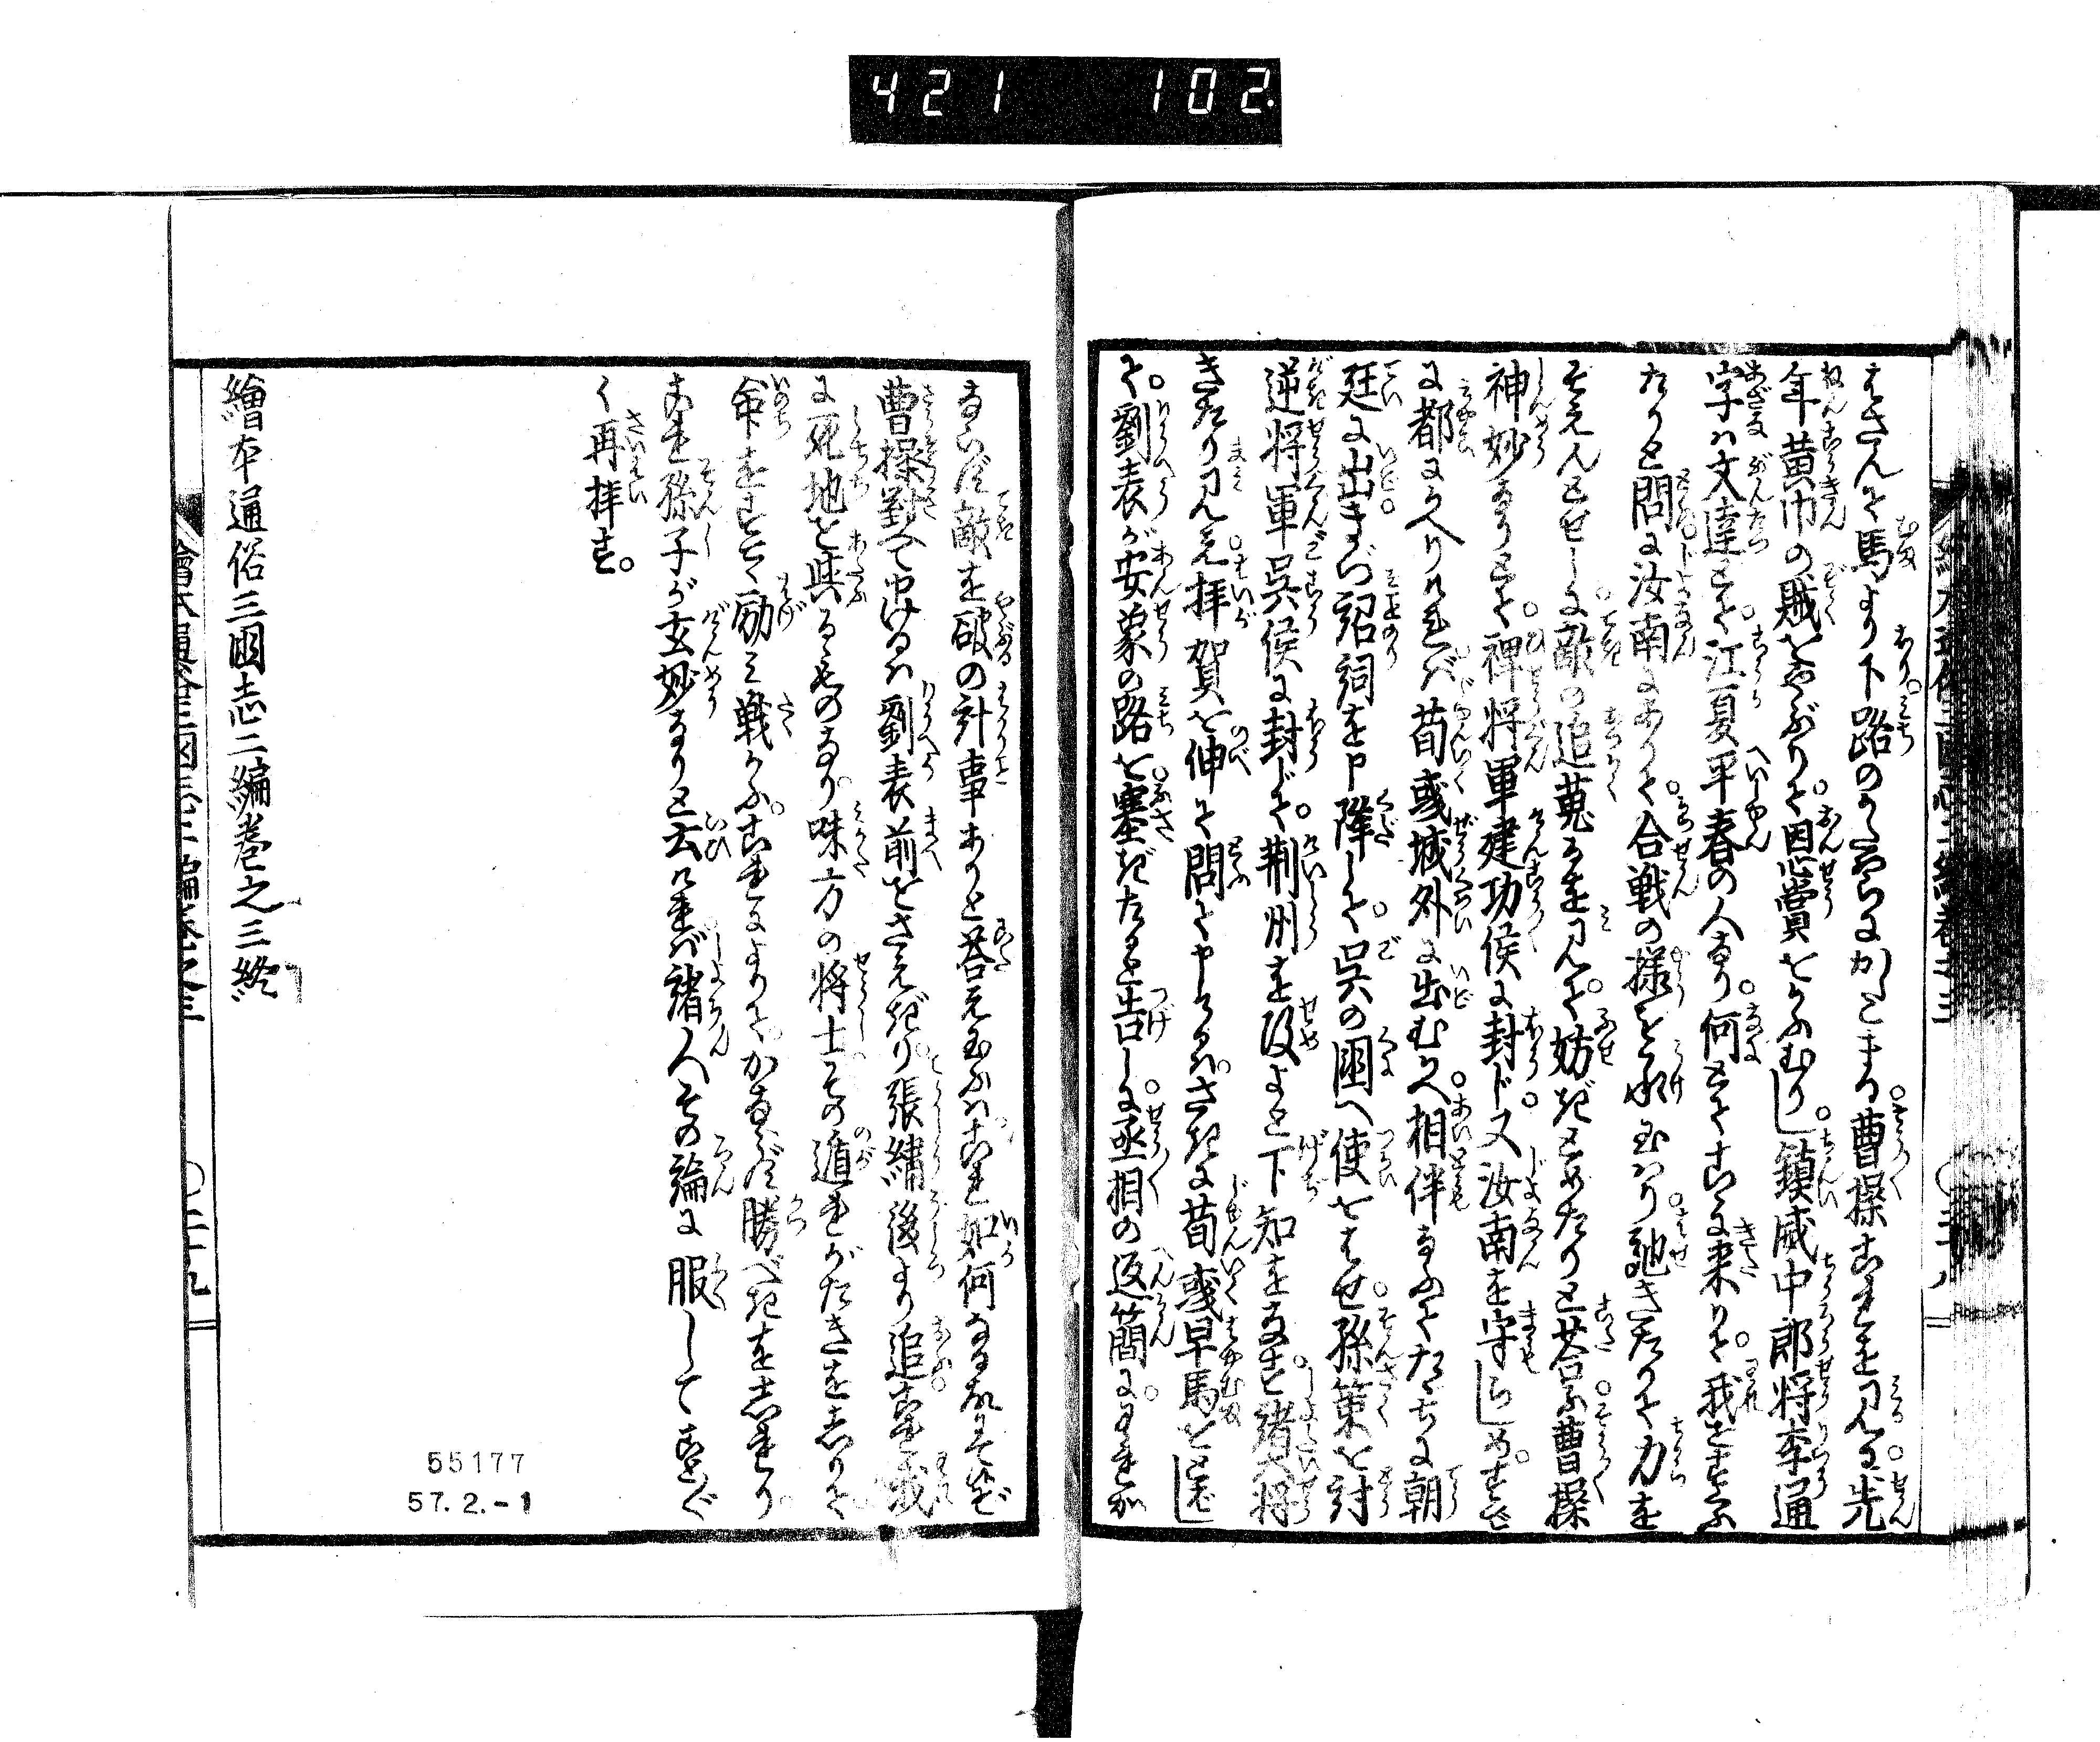 421 102.
はさんで馬より下路のかたハらにかしこまる。曹操これを見るに先
年黄巾の賊をやぶりて。恩賞をかふむりし。鎮威中郎将李通
字ハ文達とて。江夏平春の人なり。何とてこゝに来りて。我をすくふ
たりと問に汝南にありて。合戦の様を承玉ハり。馳きたりて力を
そえんとせしに敵の追蒐るを見て。妨ぎとめたりと答ふ曹操
神妙なりとて。裨将軍建功侯に封ド。又汝南を守らしめ。すで
に都にかへりけれバ荀彧城外に出むかへ。相伴なふてたゞちに朝
廷に出。まづ詔詞を申降して。呉の國へ使をはせ。孫策を討
逆将軍呉侯に封ドて。荊州を攻よと下知をなす。諸大将
きたり見え。拝賀を伸て問て申けるハ。さきに荀彧早馬をはし
て。劉表が安象の路を塞ぎたるを告しに。丞相の返簡に。われか
ならず敵を破の計事ありと答え玉ふハこれ如何なる故にて候ぞ
曹操對へて申けるハ劉表前をさえぎり。張繡後より追。これ我
に死地を與るものなり。味方の将士その遁れがたきを志りて
命をすてゝ励ミ戦かふ。これによりて。かならず勝べきを志れり。
これ孫子が玄妙なりと云けれバ。諸人その論に服してこと〴〵
く再拝す。
繪本通俗三國志二編巻之三終
繪本通俗三國志二編巻之三 〇二十九
55177
57.2.-1